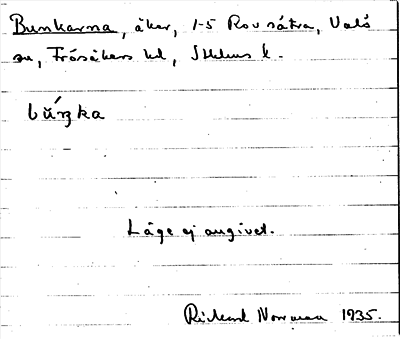 Bunkarna, åker, 1-5 Rovsätra, Valö
sn, Frösåkers hd, Sthlms l.
bŭ́ŋka
Läge ej angivet.
Rickard Norrman 1935.